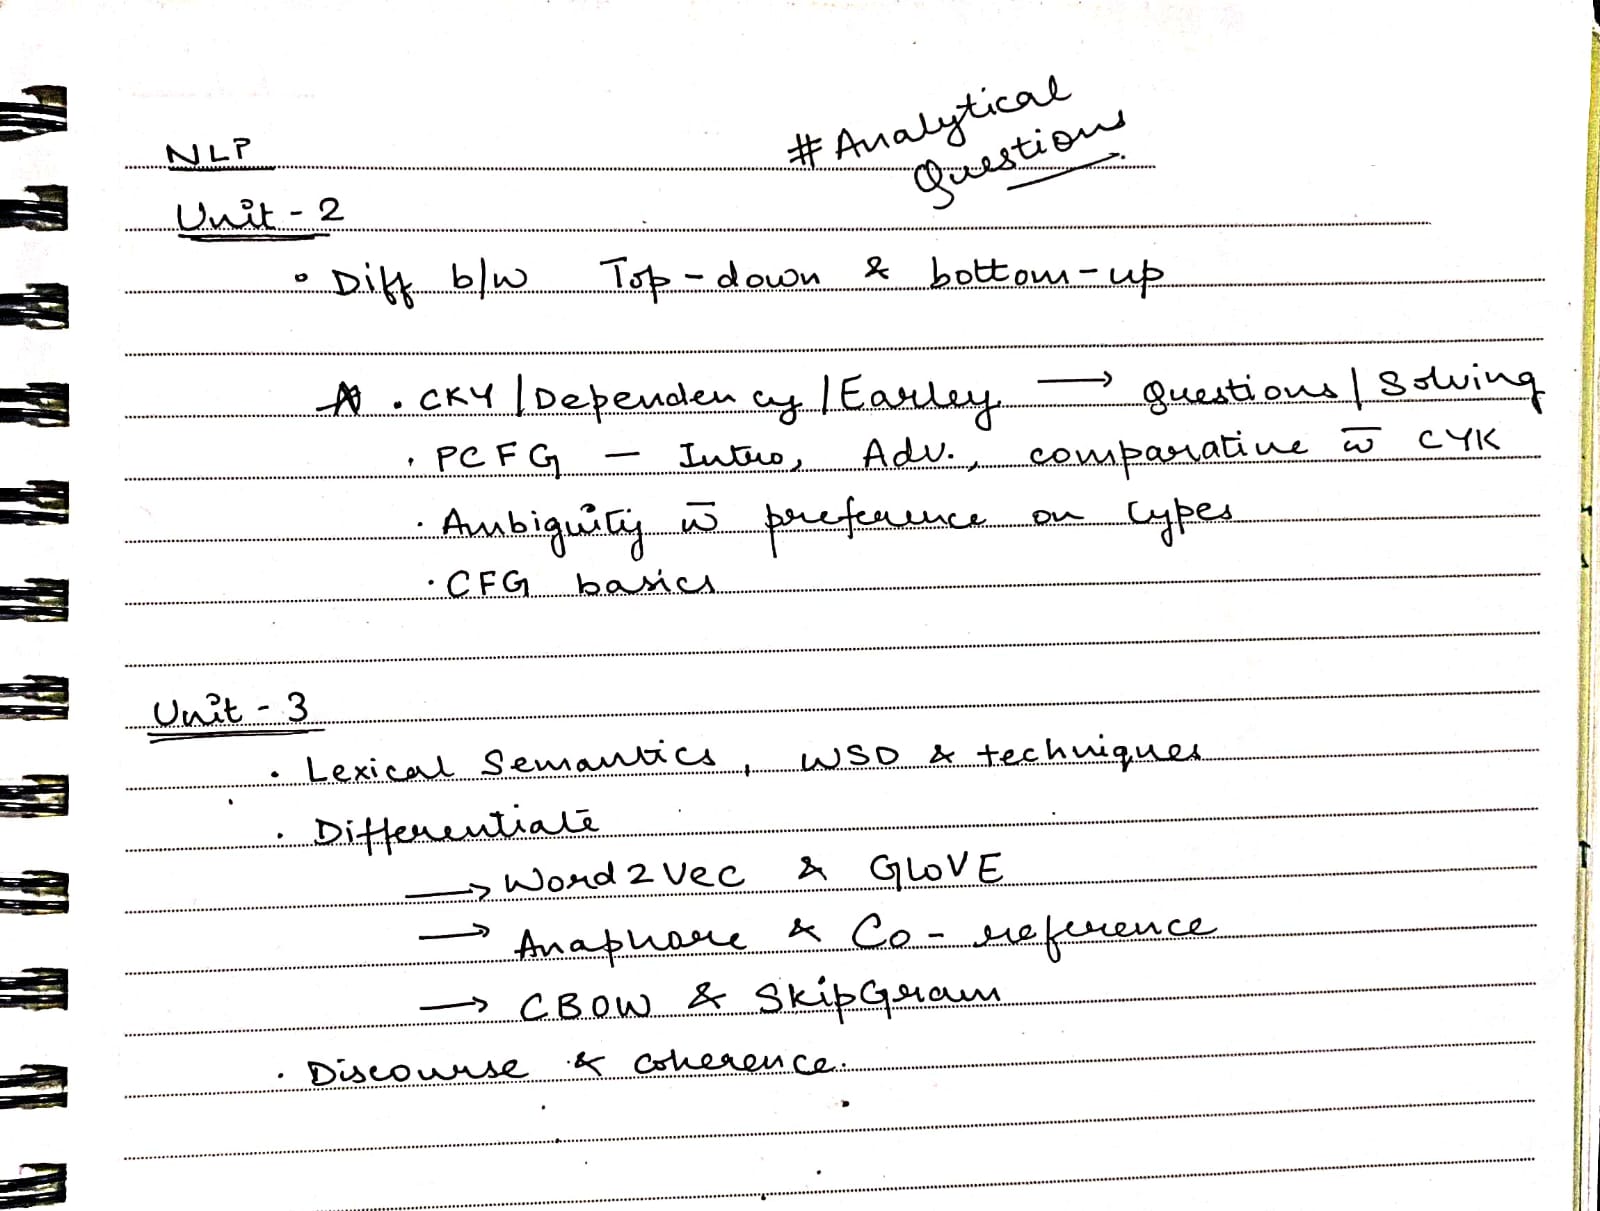 NLP
#Analytical
Questions
Unit - 2
• Diff b/w Top-down & bottom-up
• CKY / Dependency / Earley → Questions / Solving
• PCFG — Intro, Adv., comparative w̅ CYK
• Ambiguity w̅ preference on types
• CFG basics
Unit - 3
• Lexical Semantics, WSD & techniques
• Differentiate
→ Word2Vec & GLOVE
→ Anaphore & Co-reference
→ CBOW & SkipGram
• Discourse & coherence.